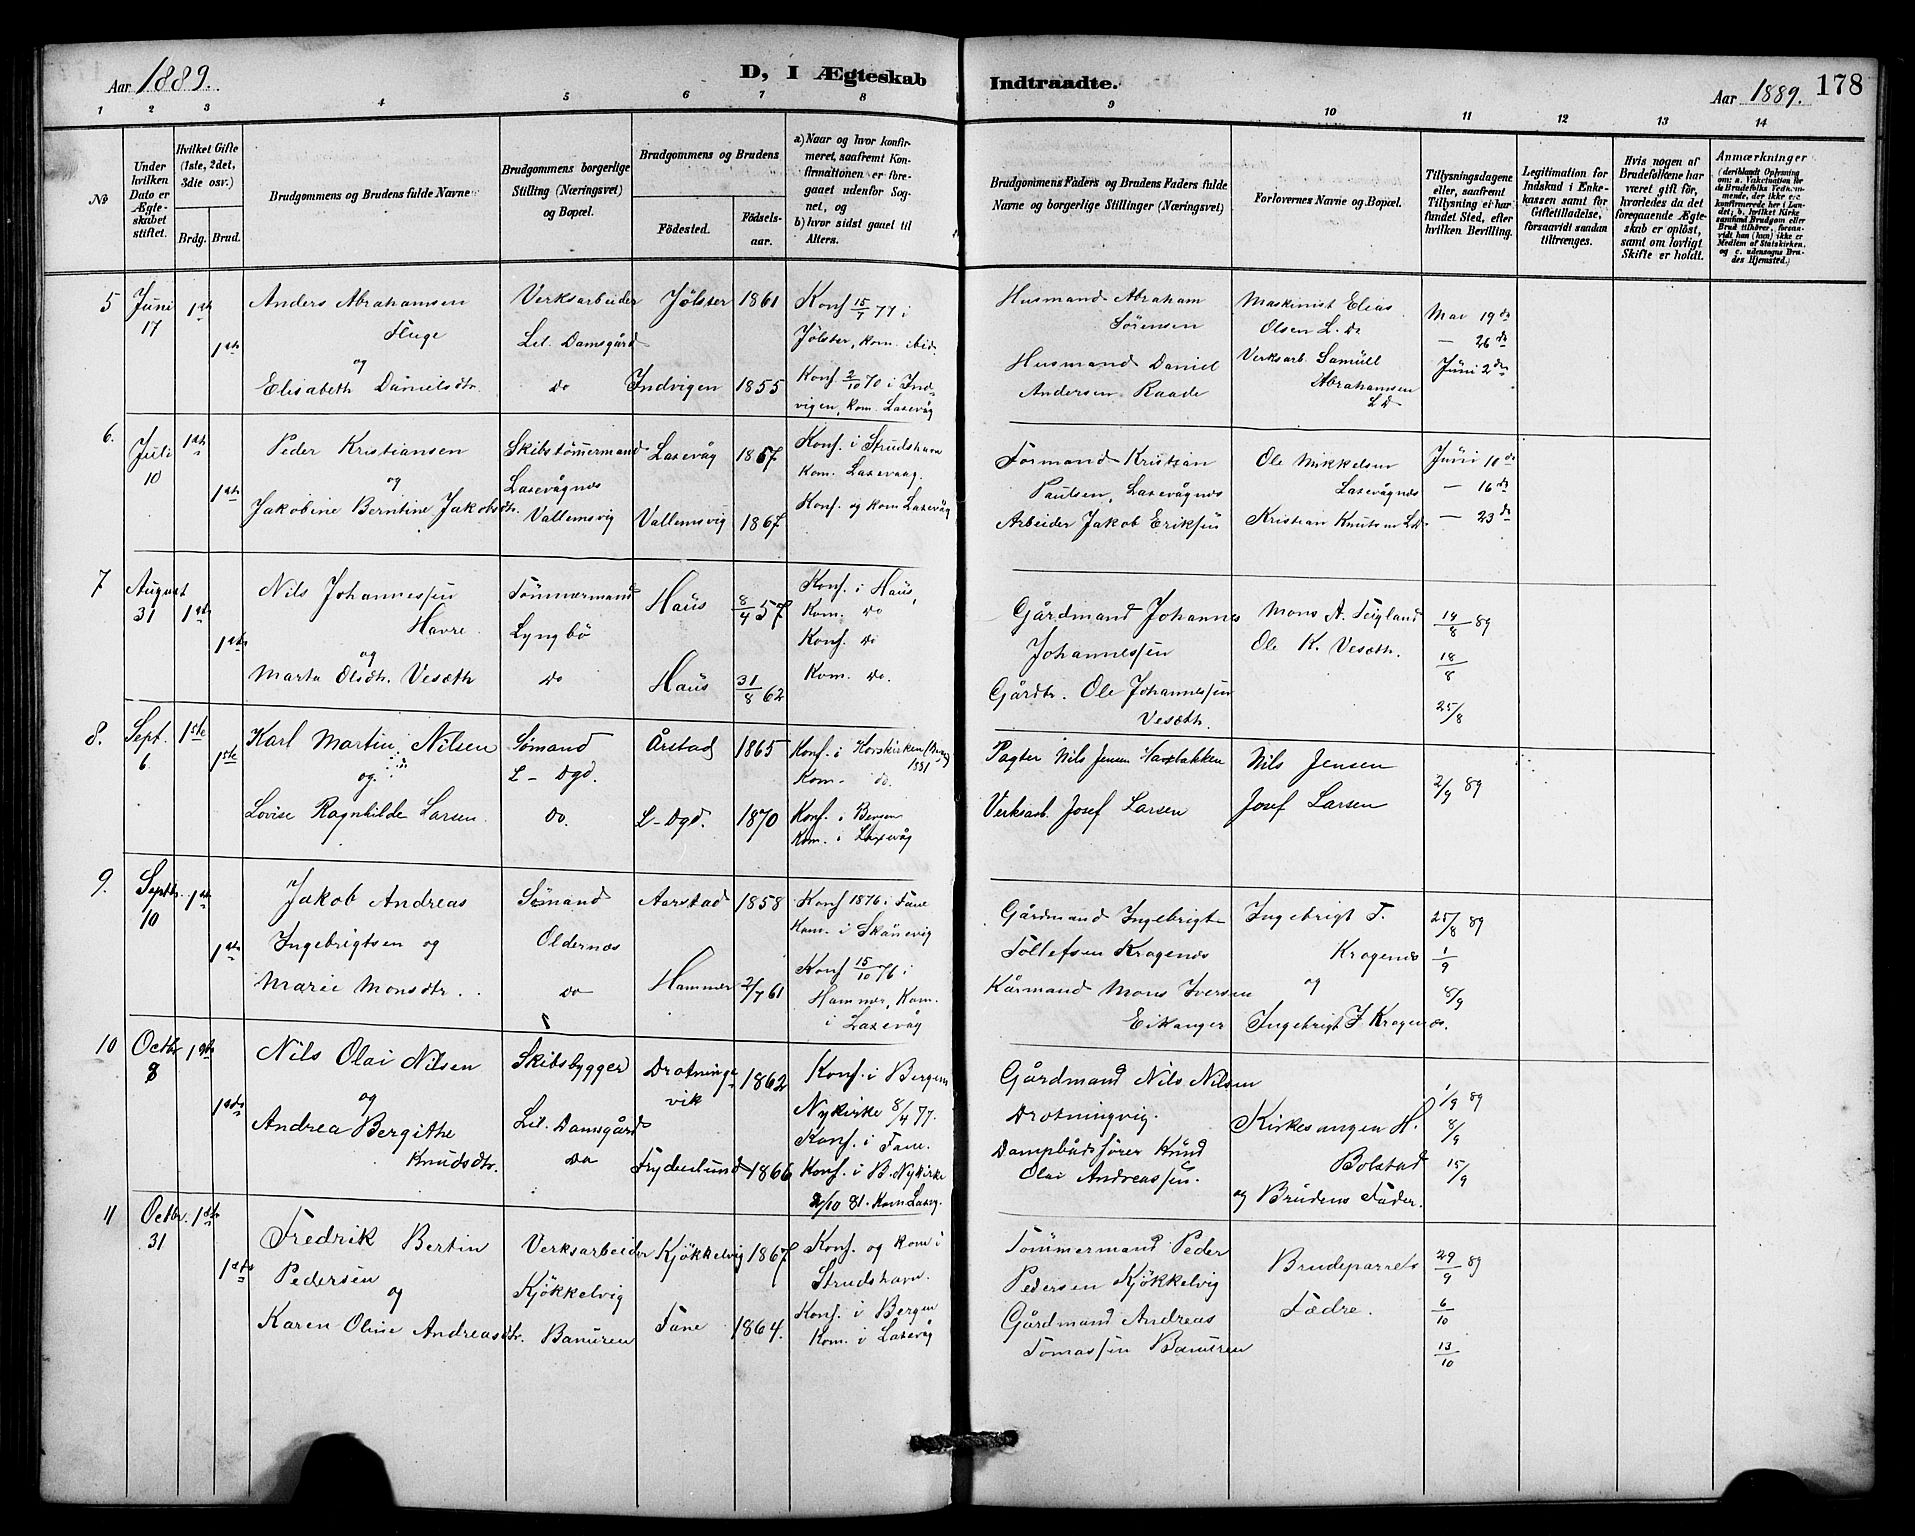 Aar 1889. D, I Ægteskab Indtraadte. Aar 1889. 178
1 2 3 4 5 6 7 8 9 10 11 12 13 14
No
Under hvilken Dato er Ægteskabet stiftet.
Hvilket Gifte (1ste, 2det, 3die osv.)
Brdg. Brud.
Brudgommens og Brudens fulde Navne
Brudgommens borgerlige Stilling (Næringsvei) og Bopæl.
Brudgommens og Brudens
Fødested. Fødselsaar.
a) Naar og hvor konfirmeret, saafremt Konfirmationen er foregaaet udenfor Sognet, og
b) hvor sidst gaaet til Alters.
Brudgommens Faders og Brudens Faders fulde Navne og borgerlige Stillinger (Næringsvei)
Forlovernes Navne og Bopæl.
Tillysningsdagene eller, saafremt Tillysning ei har fundet Sted, efter hvilken Bevilling.
Legitimation for Indskud i Enkekassen samt for Giftetilladelse, forsaavidt saadan tiltrænges.
Hvis nogen af Brudefolkene har været gift før, hvorledes da det foregaaende Ægteskab er opløst, samt om lovligt Skifte er holdt.
Anmærkninger
5 Juni 17 1ste 1ste
Anders Abrahamsen
Fluge
og
Elisabeth Danielsdtr.
Verksarbeider
Lil. Damsgård
do
Jølster 1861
Indvigen 1855
Konf 15/7 77 i
Jølster, kom. ibid.
Konf. 2/10 70 i Ind-
vigen, kom. Laxevåg
Husmand Abraham
Sørensen
Husmand Daniel
Andersen Raade
Maskinist Elias
Olsen L. D
Verksarb. Samüll
Abrahamsen
L D
Mai 19de
— 26de
Juni 2den
6. Juli 10 1ste 1ste
Peder Kristiansen
og
Jakobine Berntine Jakobsdtr.
Skibstømmermand
Laxevågnes
Vallemsvig
Laxevåg 1867
Vallemsvig 1867
Konf. i Strudshavn
Kom. Laxevaag.
Konf. og kom Laxevåg
Formand Kristian
Paulsen, Laxevågnes
Arbeider Jakob Eriksen
Ole Mikkelsen
Laxevågnes
Kristian Knutsen LD
Juni 10de
— 16de
— 23de
7 August 31 1ste 1ste
Nils Johannessen
Havre.
og
Marta Olsdtr. Vesæth
Tømmermand
Lyngbø
do
Haus 8/4 57
Haus 31/8 62
Konf. i Haus,
Kom. do
Konf. do
Kom. do.
Gårdmand Johannes
Johannessen
Gårdbr. Ole Johannessen
Vesæth.
Mons A. Teigland
Ole K. Vesæth.
14/8 89
18/8
25/8
8. Sept. 6 1ste 1ste
Karl Martin Nilsen
og
Lovise Ragnhilde Larsen
Sømand
L- Dgd.
do.
Årstad 1865
L-Dgd. 1870
Konf. i Korskirken
1881
Kom. do.
Konf. i Bergen
Kom. i Laxevåg
Pagter Nils Jensen
Verksarb. Josef Larsen
Nils Jensen
Josef Larsen
2/9 89
9. Septbr. 10 1ste 1ste
Jakob Andreas
Ingebrigtsen og
Marie Monsdtr.
Sømand
Oldernes
do
Aarstad 1858
Hammer 2/7 61
Konf 1876 i Fane
Kom. i Skånevig
Konf 15/10 76 i
Hammer, Kom.
i Laxevåg
Gårdmand Ingebrigt
Tollefsen Kragenes
Kårmand Mons Iversen
Eikanger
Ingebrigt T.
Kragenes
og
Ingebrigt J Kragenes.
25/8 89
1/9
8/9
10 Octbr 8 1ste 1ste
Nils Olai Nilsen
og
Andrea Bergithe
Knudsdtr.
Skibsbygger
Lil. Damsgård
do
Drotninge-
vik 1862
Frydenlund 1866
Konf. i Bergen
Nykirke 8/4 77.
Konf. i Fane.
Konf. i B. Nykirke
2/10 81. Kom Laxevg.
Gårdmand Nils Nilsen
Drotningvig.
Dampbådsfører Knud
Olai Andreassen.
Kirkesangen H.
Bolstad
og Brudens Fader.
1/9 89
8/9
15/9
11 Octbr. 31 1ste 1ste
Fredrik Bertin
Pedersen
og
Karen Oline Andreasdtr.
Verksarbeider
Kjøkkelvig
Banüren
Kjøkkelvig 1867
Fane 1864.
Konf. og kom i
Strudshavn.
Konf. i Bergen
Kom. i Laxevåg
Tømmermand Peder
Pedersen Kjøkkelvig
Gårdmand Andreas
Tomassen Banüren
Brudeparrets
Fædre.
29/9 89
6/10
13/10